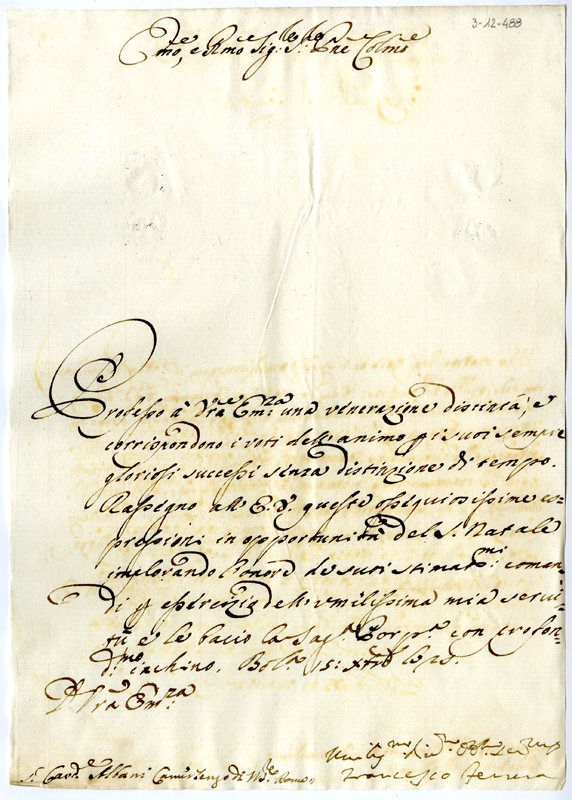 3-12-488
Em.mo, e R.mo Sig.r Sig.r P.rone Col.mo
Professo à V'ra Em.za una venerazione distinta, e
corrispondono i voti dell'animo p i suoi sempre
gloriosi successi senza distinzione di tempo.
Rassegno all'E.V. queste ossequiosissime es-
pressioni in opportunità del S. Natale
implorando l'onore de suoi stimat.mi coman-
di p esercizio dell'umilissima mia servi-
tù e le bacio la Sag.a Porp.a con profon-
d.mo inchino. Bol.a 15: Xbre
D V'ra Em.za
S.r Card.e Albani Camerlengo di Roma
Francesco Ferrera